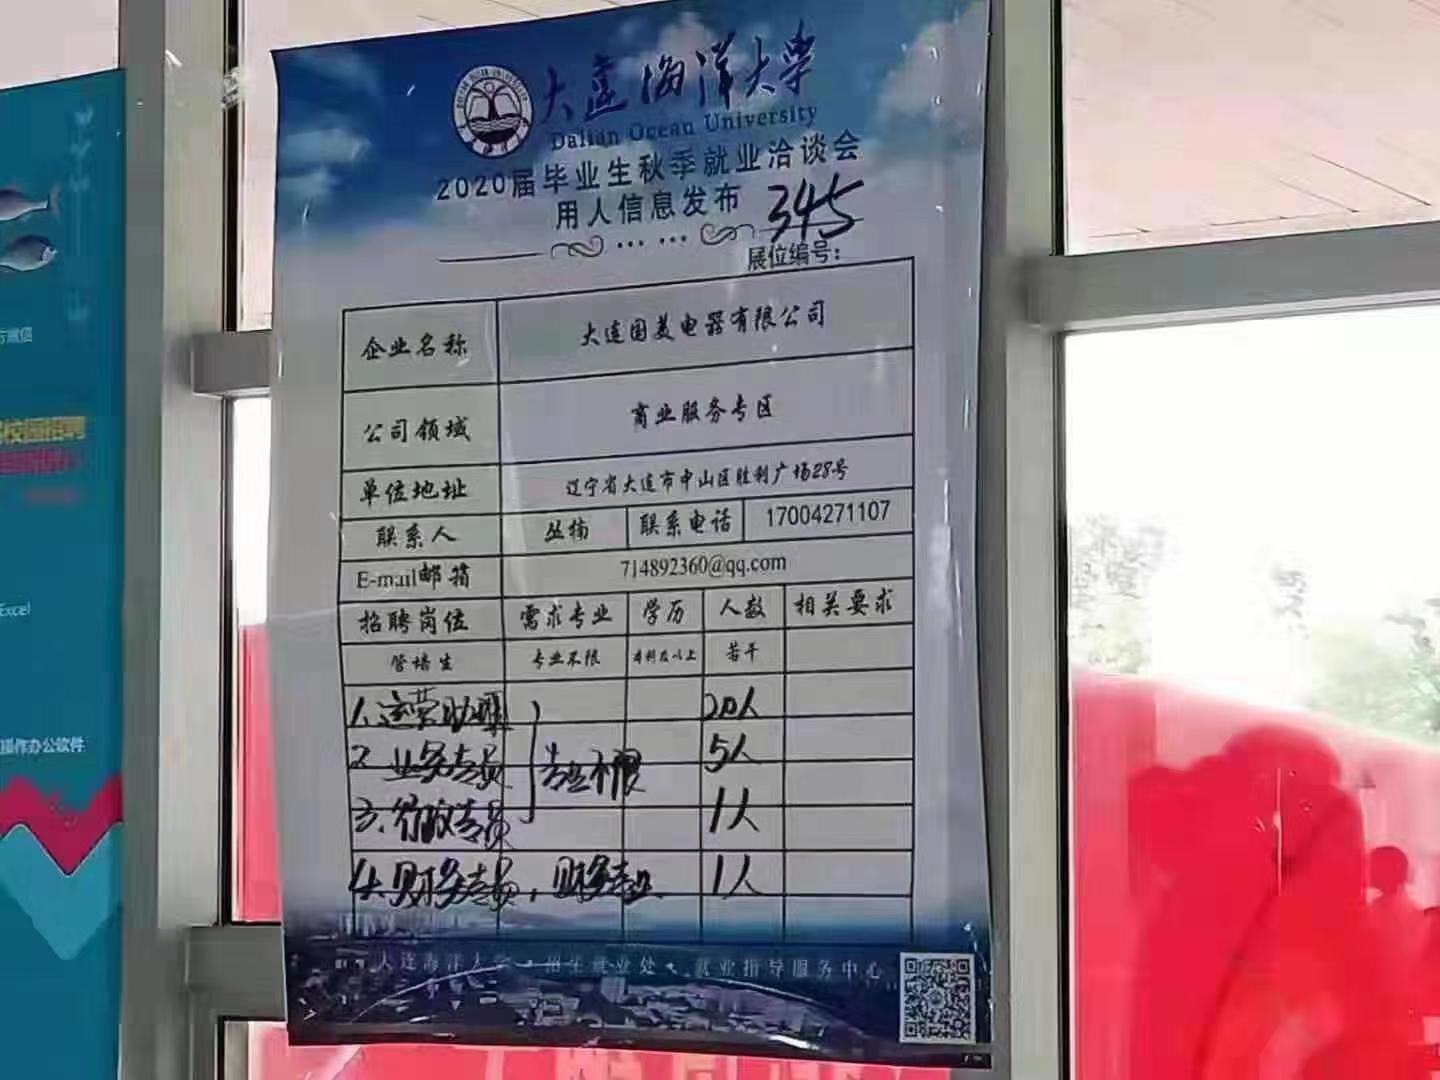 大连海洋大学
Dalian Ocean University
2020届毕业生秋季就业洽谈会
用人信息发布
345
展位编号：
企业名称 大连国美电器有限公司
公司领域 商业服务专区
单位地址 辽宁省大连市中山区胜利广场28号
联系人 丛楠 联系电话 17004271107
E-mail邮箱 714892360@qq.com
招聘岗位 需求专业 学历 人数 相关要求
管培生 专业不限 本科及以上 若干
1.运营助理 20人
2.业务专员 专业不限 5人
3.行政专员 1人
4.财务专员，财务专业 1人
大连海洋大学·招生就业处·就业指导服务中心
校园招聘
Excel
操作办公软件